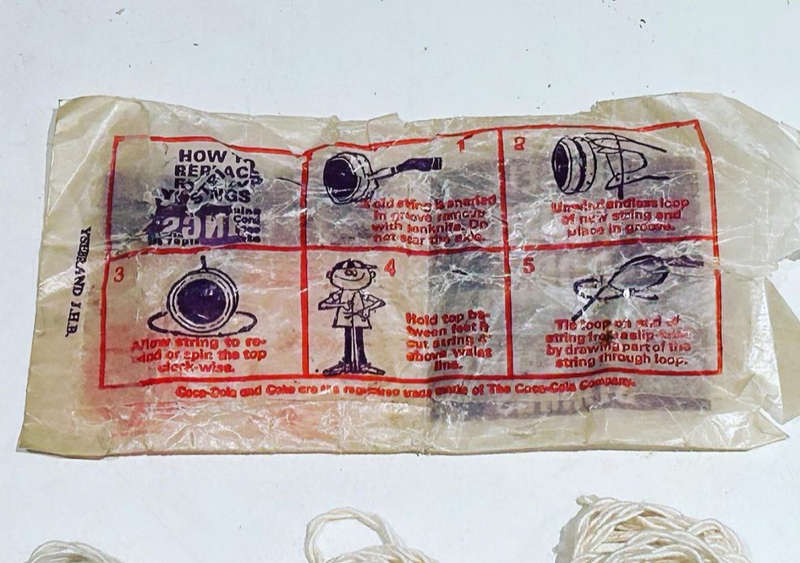 HOW
REPLAC
INGS
1
old string is snarled
in groove remove
with penknife. Do
not scar the axle.
2
Unwind endless loop
of new string and
place in groove.
3
Allow string to re-
wind or spin the top
clock-wise.
4
Hold top be-
tween feet &
cut string 4"
above waist
line.
5
Tie loop on end of
string
by drawing part of the
string through loop.
Coca-Cola and Coke are the registered trade marks of The Coca-Cola Company.
J.H.B.